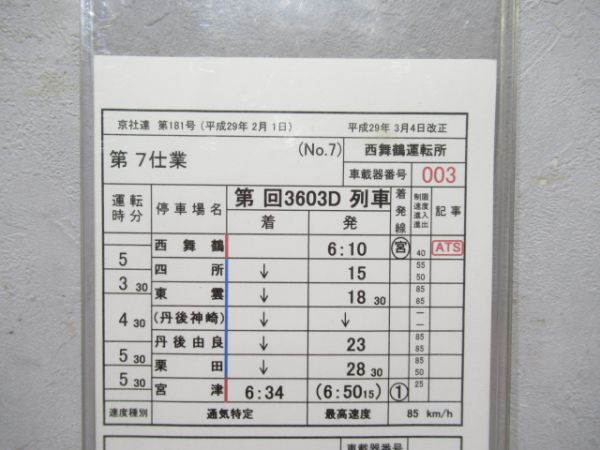 京社達 第181号(平成29年 2月 1日) 平成29年 3月4日改正
第 7仕業 (No.7) 西舞鶴運転所
車載器番号 003
運転時分 停車場名 第 回3603D 列車 着発線 制限速度 進入進出 記事
着 発
西舞鶴 6:10 宮 40 ATS
5
四所 ↓ 15 55 50
3 30
東雲 ↓ 18 30 85 85
(丹後神崎) ↓ ↓ — —
4 30
丹後由良 ↓ 23 85 85
5 30
栗田 ↓ 28 30 85 50
5 30
宮津 6:34 (6:50 15) ① 25
速度種別 通気特定 最高速度 85 km/h
車載器番号